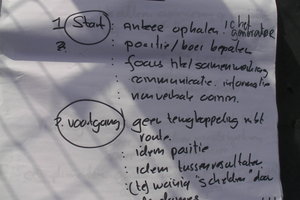 1 Start : anker ophalen
2. : positie/boei bepalen
: focus hbl samenwerking
: communicatie. informatie
: non verbale comm.
2. voortgang geen terugkoppeling mbt
route.
: idem positie
: idem tussenresultaten
: (te) weinig "schelden" door